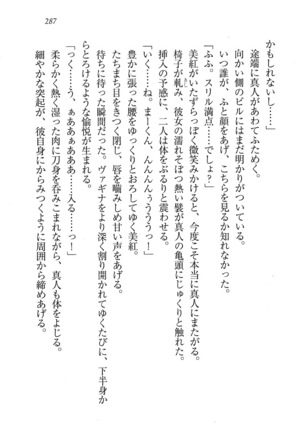 287
かもしれないし……」
途端に真人があわてふためく。
向かい側のビルにはまだ明かりがついている。
いつ誰が、ふと顔をあげ、こちらを見るか知れなかった。
「ふふ。スリル満点……でしょ?」
美紅がいたずらっぽく微笑みかけると、今度こそ本当に真人にまたがる。
椅子が軋み、彼女の濡れそぼつ熱い襞が真人の亀頭にじゅくりと触れた。
挿入の予感に、二人は体をぶるりと震わせる。
「いく……ね。まーくん、んんんんぅううううっ!」
豊かに張った腰をゆっくりとおろしてゆく美紅。
たちまち目をきつく閉じ、唇を噛みしめ甘い声をあげる。
待ちに待った瞬間だった。ヴァギナをより深く割り開かれてゆくたびに、下半身か
らとろけるような愉悦が生まれる。
「っく……う、ぁあぁぁぁあ……入る……っ!」
柔らかく熱く湿った肉に刀身を呑みこまれながら、真人も体をよじる。
細やかな突起が、彼自身にからみつくように周囲から締めあげる。